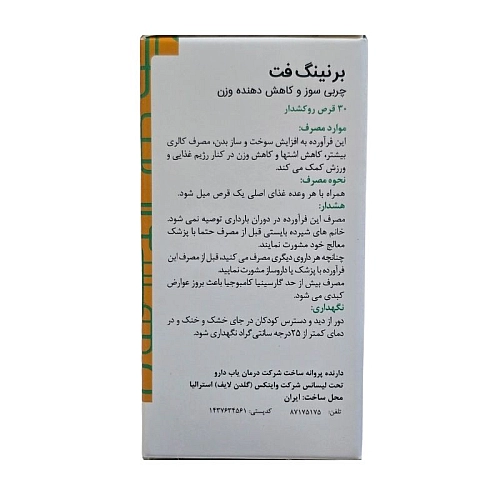 برنینگ فت
چربی سوز و کاهش دهنده وزن
۳۰ قرص روکشدار
موارد مصرف:
این فرآورده به افزایش سوخت و ساز بدن، مصرف کالری
بیشتر، کاهش اشتها و کاهش وزن در کنار رژیم غذایی و
ورزش کمک می کند.
نحوه مصرف:
همراه با هر وعده غذای اصلی یک قرص میل شود.
هشدار:
مصرف این فرآورده در دوران بارداری توصیه نمی شود.
خانم های شیرده بایستی قبل از مصرف حتما با پزشک
معالج خود مشورت نمایند.
چنانچه هر داروی دیگری مصرف می کنید، قبل از مصرف این
فرآورده با پزشک یا داروساز مشورت نمایید.
مصرف بیش از حد گارسینیا کامبوجیا باعث بروز عوارض
کبدی می شود.
نگهداری:
دور از دید و دسترس کودکان در جای خشک و خنک و در
دمای کمتر از ۲۵درجه سانتی گراد نگهداری شود.
دارنده پروانه ساخت شرکت درمان یاب دارو
تحت لیسانس شرکت وایتکس (گلدن لایف) استرالیا
محل ساخت: ایران
تلفن: ۸۷۱۷۵۱۷۵ کدپستی: ۱۴۳۷۶۳۴۵۶۱